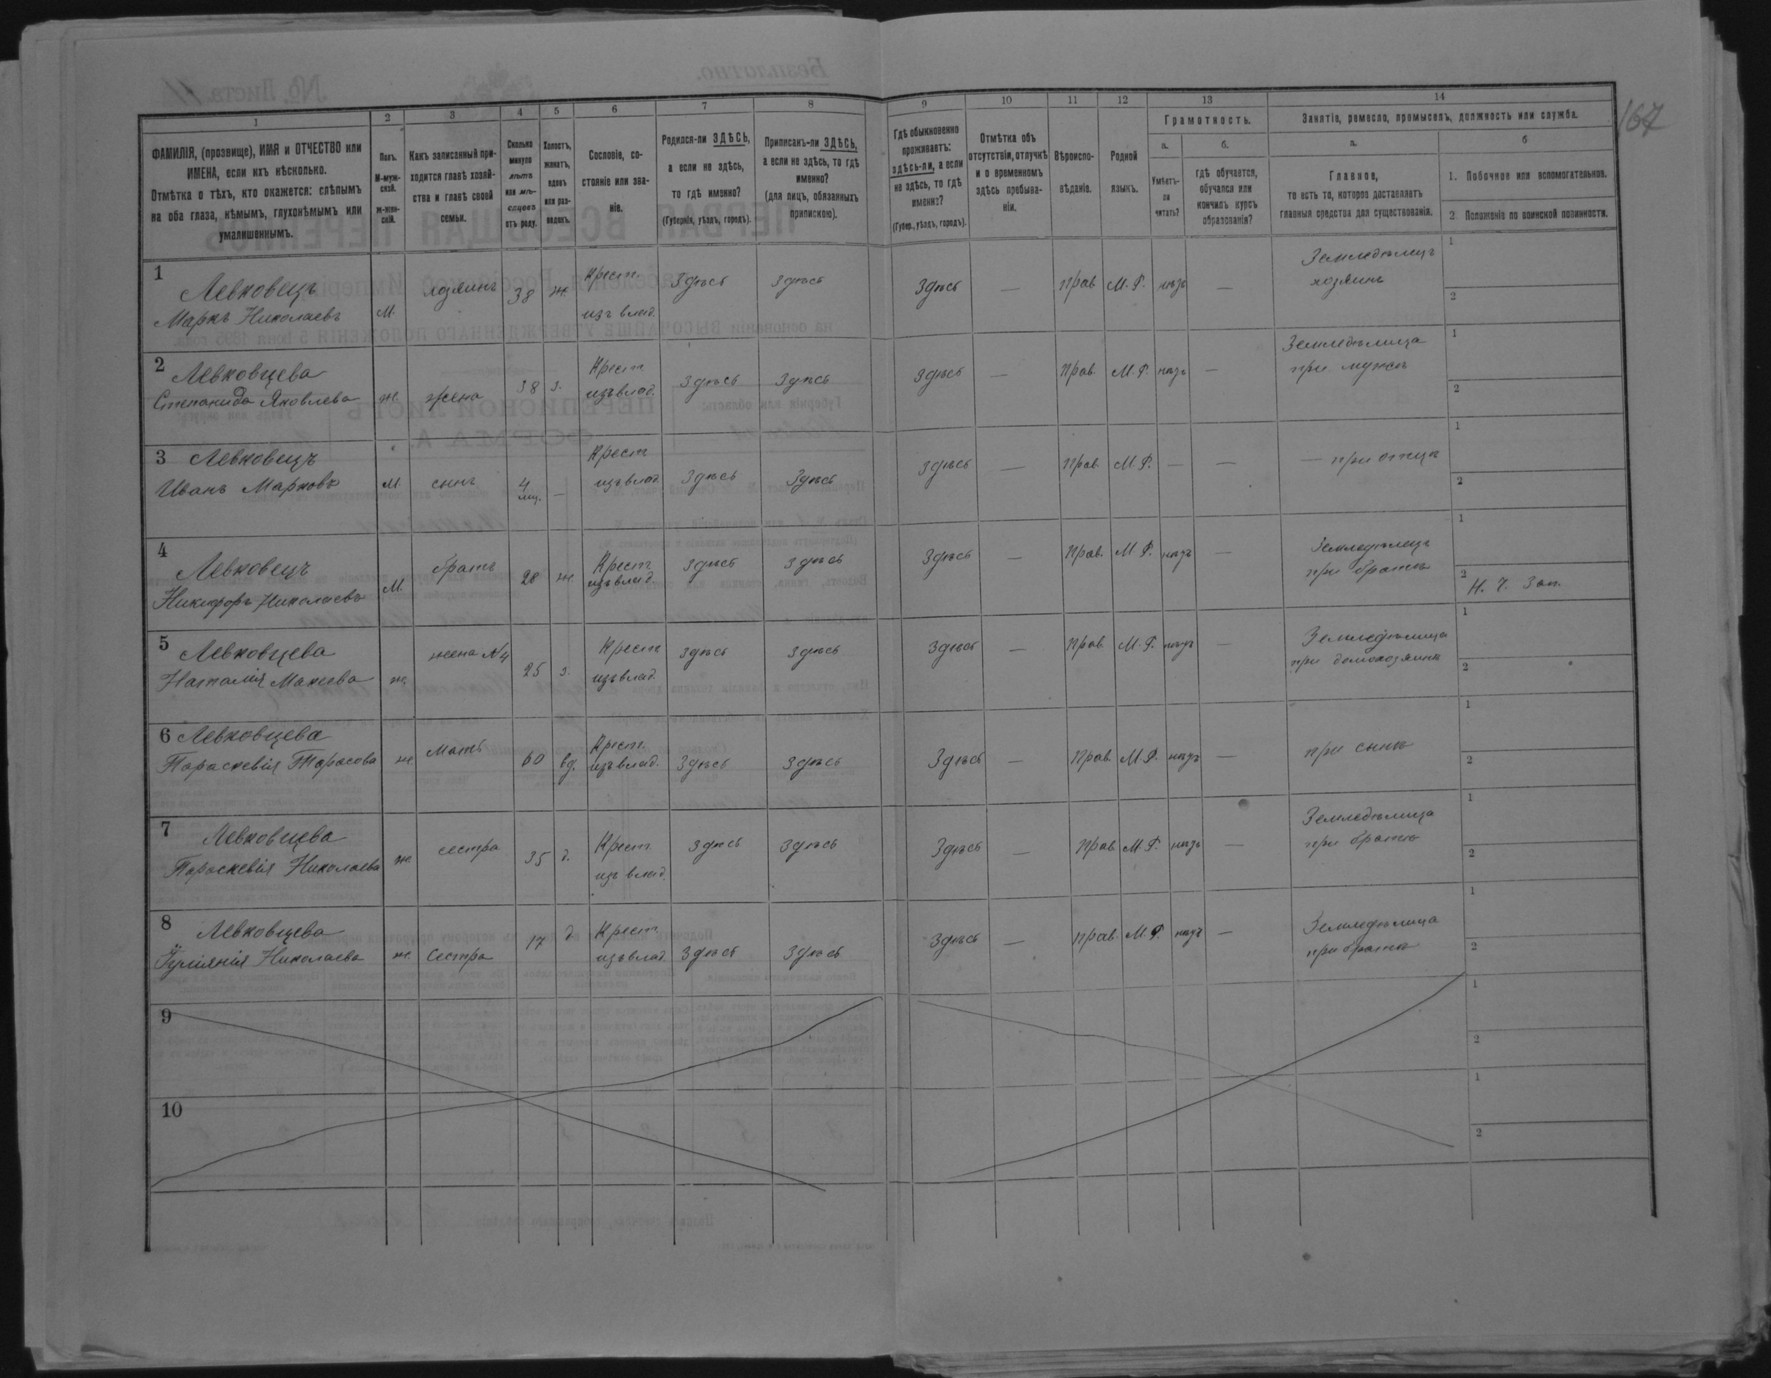 167
1 2 3 4 5 6 7 8 9 10 11 12 13 14
ФАМИЛІЯ, (прозвище), ИМЯ и ОТЧЕСТВО или ИМЕНА, если ихъ нѣсколько.
Отмѣтка о тѣхъ, кто окажется: слѣпымъ на оба глаза, нѣмымъ, глухонѣмымъ или умалишеннымъ.
Полъ.
М-мужской.
ж-женскій.
Какъ записанный приходится главѣ хозяйства и главѣ своей семьи.
Сколько минуло лѣтъ или мѣсяцевъ отъ роду.
Холостъ, женатъ, вдовъ или разведенъ.
Сословіе, состояніе или званіе.
Родился-ли ЗДѢСЬ,
а если не здѣсь,
то гдѣ именно?
(Губернія, уѣздъ, городъ).
Приписанъ-ли ЗДѢСЬ,
а если не здѣсь, то гдѣ именно?
(для лицъ, обязанныхъ припискою).
Гдѣ обыкновенно проживаетъ:
здѣсь-ли, а если не здѣсь, то гдѣ именно?
(Губер., уѣздъ, городъ).
Отмѣтка объ отсутствіи, отлучкѣ и о временномъ здѣсь пребываніи.
Вѣроисповѣданіе.
Родной языкъ.
Грамотность.
а. Умѣетъ-ли читать?
б. гдѣ обучается, обучался или кончилъ курсъ образованія?
Занятіе, ремесло, промыселъ, должность или служба.
а. Главное,
то есть то, которое доставляетъ главныя средства для существованія.
б
1. Побочное или вспомогательное.
2. Положеніе по воинской повинности.
1 Левковецъ Маркъ Николаевъ М. хозяинъ 38 ж. Крест. изъ влад. Здѣсь Здѣсь Здѣсь — Прав. М. Р. нѣтъ — Земледѣлецъ хозяинъ 1 2
2 Левковцева Степанида Яковлева ж. жена 38 з. Крест изъ влад. Здѣсь Здѣсь Здѣсь — Прав. М. Р. нѣтъ — Земледѣлица при мужѣ 1 2
3 Левковецъ Иванъ Марковъ М. сынъ 4 мѣ. — Крест изъ влад Здѣсь Здѣсь Здѣсь — Прав. М. Р. — — — при отцѣ 1 2
4 Левковецъ Никифоръ Николаевъ М. братъ 28 ж Крест изъ влад Здѣсь Здѣсь Здѣсь — Прав. М. Р. нѣтъ — Земледѣлецъ при братѣ 1 2 Н. Ч. Зап.
5 Левковцева Наталія Макеева ж. жена №4 25 з. Крест изъ влад. Здѣсь Здѣсь Здѣсь — Прав. М. Р. нѣтъ — Земледѣлица при домохозяинѣ 1 2
6 Левковцева Параскевія Тарасова ж мать 60 вд. Крест. изъ влад. Здѣсь Здѣсь Здѣсь — Прав. М. Р. нѣтъ — при сынѣ 1 2
7 Левковцева Параскевія Николаева ж. сестра 35 д. Крест. изъ влад. Здѣсь Здѣсь Здѣсь — Прав. М. Р. нѣтъ — Земледѣлица при братѣ 1 2
8 Левковцева Николаева ж. Сестра 17 д Крест изъ влад. Здѣсь Здѣсь Здѣсь — Прав. М. Р. нѣтъ — Земледѣлица при братѣ 1 2
9 1 2
10 1 2